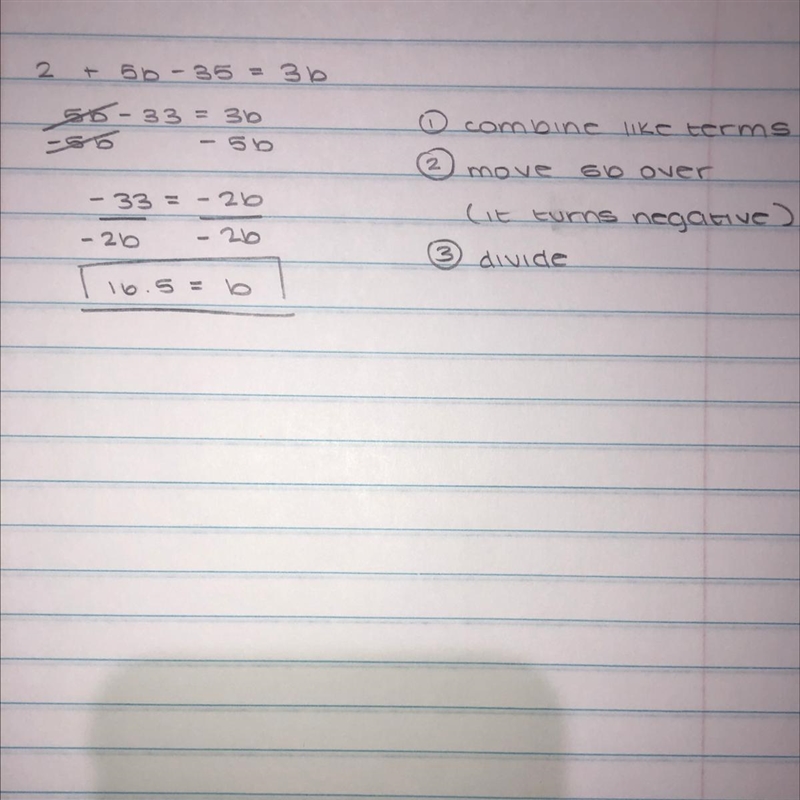 2 + 5b - 35 = 3b
5b - 33 = 3b
-5b - 5b
-33 = -2b
-2b -2b
16.5 = b
① combine like terms
② move 5b over
(it turns negative)
③ divide